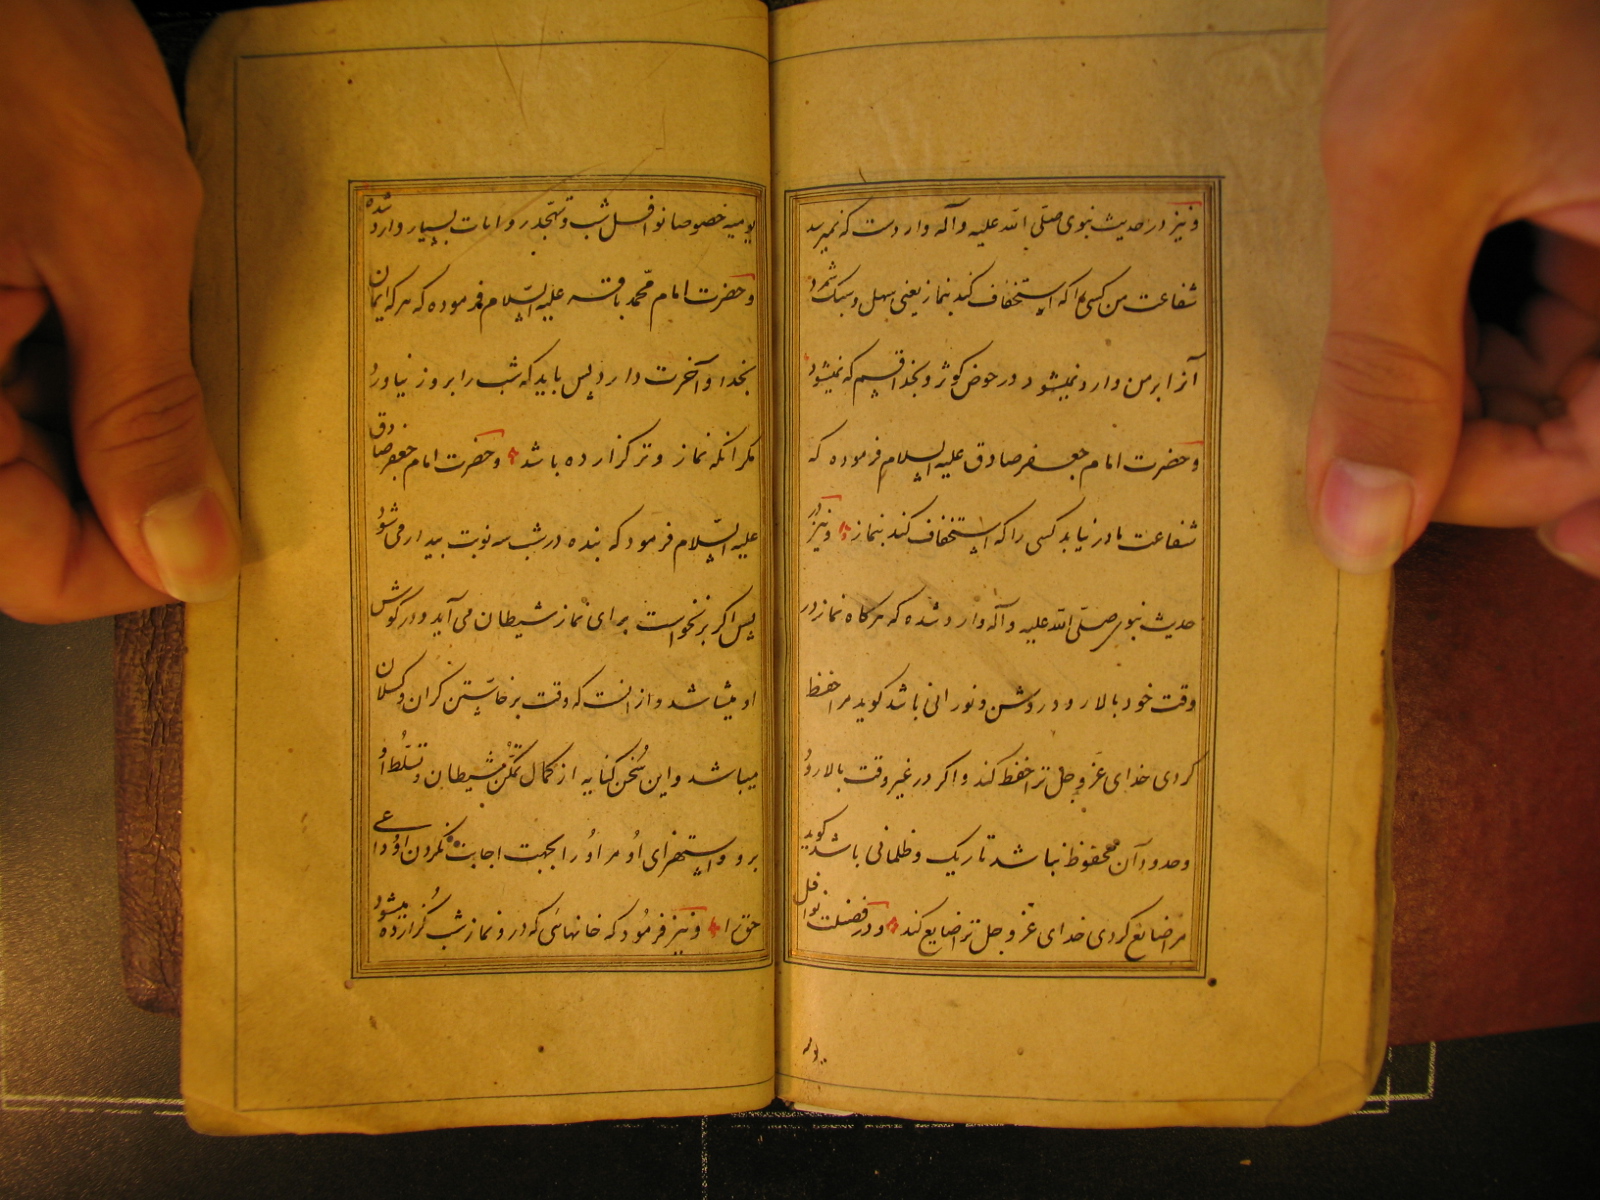 و نیز در حدیث نبوی صلّی الله علیه و آله واردست که نمیرسد
شفاعت من کسی را که استخفاف کند بنماز یعنی سهل و سبک شمرد
آنرا بر من وارد نمیشود در حوض کوثر و بخدا قسم که نمیشود
و حضرت امام جعفر صادق علیه السلام فرموده که
شفاعت ما در نیابد کسی را که استخفاف کند بنماز و نیز در
حدیث نبوی صلّی الله علیه و آله وارد شده که هر کاه نماز در
وقت خود بالا رود روشن و نورانی باشد کوید مرا حفظ
کردی خدای عزّ و جل ترا حفظ کند و اکر در غیر وقت بالا رود
و حدود آن محفوظ نباشد تاریک و ظلمانی باشد کوید
مرا ضایع کردی خدای عزّ و جل ترا ضایع کند و در فضیلت نوافل
یومیه
یومیه خصوصا نوافل شب و تهجّد روایات بسیار وارد شده
و حضرت امام محمّد باقر علیه السّلام فرموده که هر که ایمان
بخدا و آخرت دارد پس باید که شب را بروز نیاورد
مکر آنکه نماز وتر کزارده باشد و حضرت امام جعفر صادق
علیه السّلام فرمود که بنده در شب سه نوبت بیدار می شود
پس اکر برنخواست برای نماز شیطان می آید و در کوش
او میشاشد و از انست که وقت برخاستن کران و کسلان
میباشد و این سُخن کنایه از کمال تمکّن شیطان و تسلّط اُو
برو و استهزای اُو مر اُو را بجهت اجابت نکردن اُو داعی
حق را و نیز فرمُود که خانهائی که درو نماز شب کزارده میشود